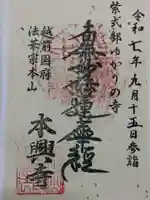 令和七年九月十五日参詣
紫式部ゆかりの寺
南無妙法蓮華経
越前国府
法華宗本山
本興寺